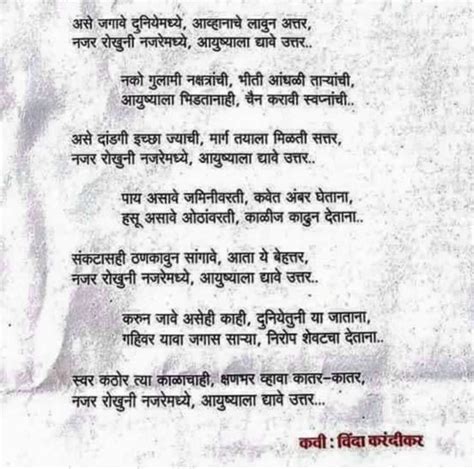 असे जगावे दुनियेमध्ये, आव्हानाचे लावुन अत्तर,
नजर रोखुनी नजरेमध्ये, आयुष्याला द्यावे उत्तर..
नको गुलामी नक्षत्रांची, भीती आंधळी ताऱ्यांची,
आयुष्याला भिडतानाही, चैन करावी स्वप्नांची..
असे दांडगी इच्छा ज्याची, मार्ग तयाला मिळती सत्तर,
नजर रोखुनी नजरेमध्ये, आयुष्याला द्यावे उत्तर..
पाय असावे जमिनीवरती, कवेत अंबर घेताना,
हसू असावे ओठांवरती, काळीज काढुन देताना..
संकटासही ठणकावुन सांगावे, आता ये बेहत्तर,
नजर रोखुनी नजरेमध्ये, आयुष्याला द्यावे उत्तर..
करुन जावे असेही काही, दुनियेतुनी या जाताना,
गहिवर यावा जगास साऱ्या, निरोप शेवटचा देताना..
स्वर कठोर त्या काळाचाही, क्षणभर व्हावा कातर-कातर,
नजर रोखुनी नजरेमध्ये, आयुष्याला द्यावे उत्तर...
कवी : विंदा करंदीकर